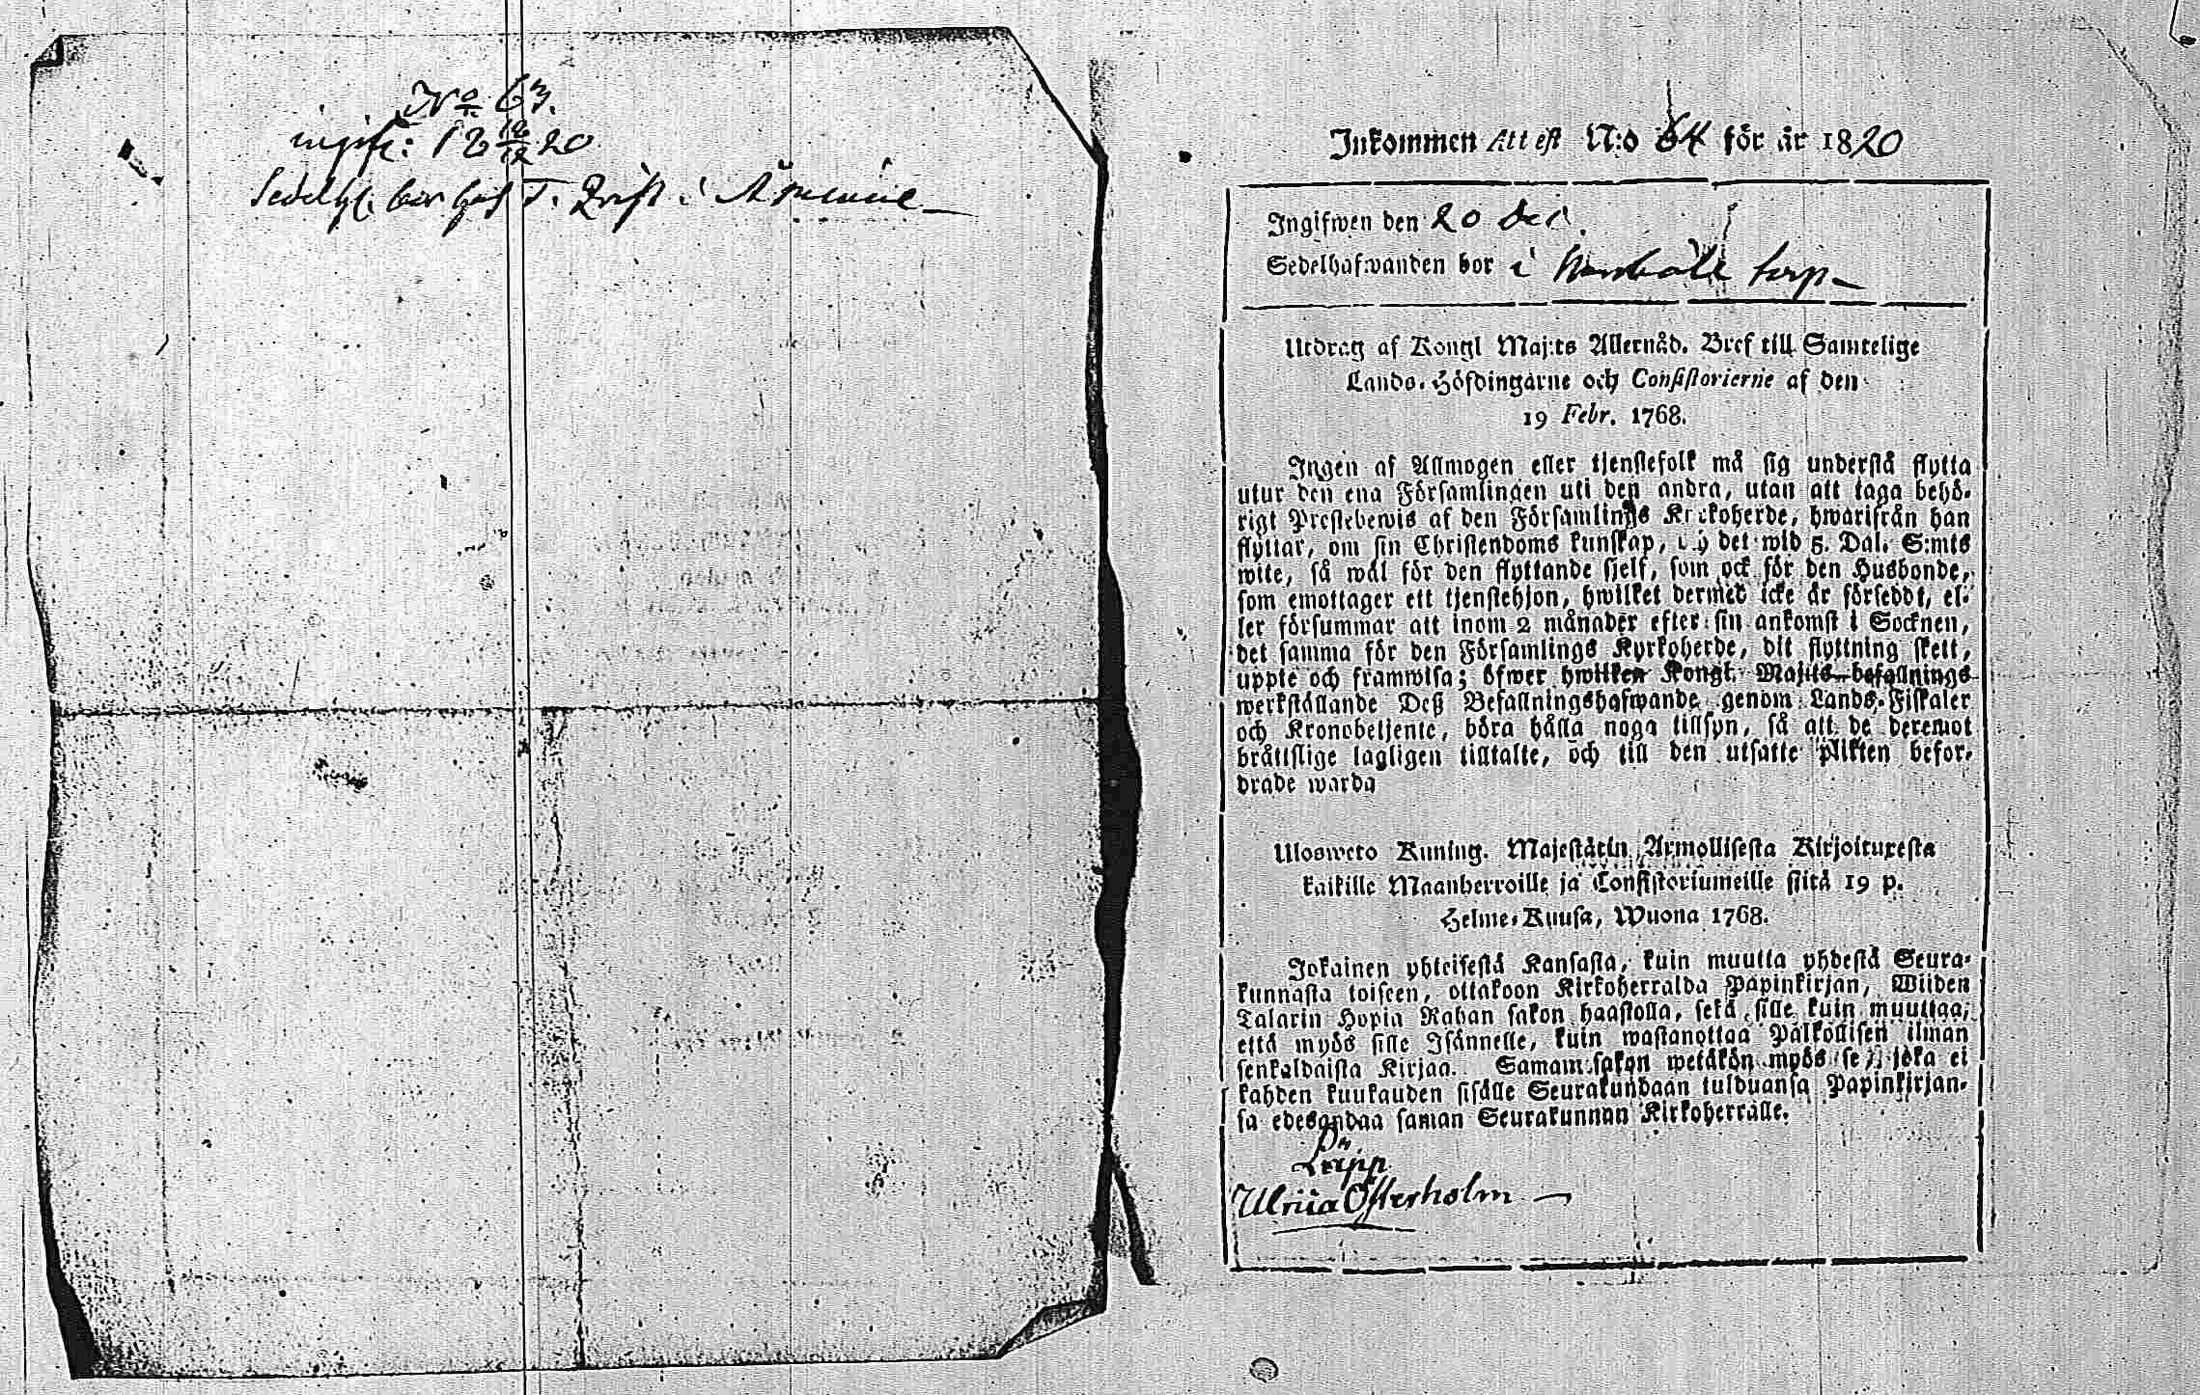 No 63.
ingifv: 18 12/12 20
Sedelh. bor hos
Inkommen Attest N:o 64 för år 1820
Ingifwen den 20 Dec.
Sedelhafwanden bor i torp
Utdrag af Kongl Maj:ts Allernåd. Bref till Samtelige
Lands-Höfdingarne och Consistorierne af den
19 Febr. 1768.
Ingen af Allmogen eller tjenstefolk må sig understå flytta
utur den ena Församlingen uti den andra, utan att taga behö-
rigt Prestebewis af den Församlings Kyrkoherde, hwarifrån han
flyttar, om sin Christendoms kunskap, det wid 5. Dal. S:mts
wite, så wäl för den flyttande sjelf, som ock för den Husbonde,
som emottager ett tjenstehjon, hwilket dermed icke är försedt, el-
ler försummar att inom 2 månader efter sin ankomst i Socknen,
det samma för den Församlings Kyrkoherde, dit flyttning skett,
uppte och framwisa; öfwer hwilken Kongl. Maj:ts befallnings
werkställande Deß Befallningshafwande genom Lands-Fiskaler
och Kronobetjente, böra hålla noga tillsyn, så att de deremot
bråttslige lagligen tilltalte, och till den utsatte plikten befor-
drade warda
Ulosweto Kuning. Majestätin Armollisesta Kirjoituxesta
kaikille Maanherroille ja Consistoriumeille siitä 19 p.
Helme-Kuusa, Wuona 1768.
Jokainen yhteisestä Kansasta, kuin muutta yhdestä Seura-
kunnasta toiseen, ottakoon Kirkoherralda Papinkirjan, Wiiden
Talarin Hopia Rahan sakon haastolla, sekä sille kuin muuttaa,
että myös sille Isännelle, kuin wastanottaa Palkollisen ilman
senkaldaista Kirjaa. Saman sakon wetäkön myös se, joka ei
kahden kuukauden sisälle Seurakundaan tulduansa Papinkirjan-
sa edesandaa saman Seurakunnan Kirkoherralle.
Pig.
Ulrica Osterholm